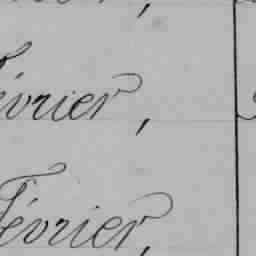 Février,
Février,